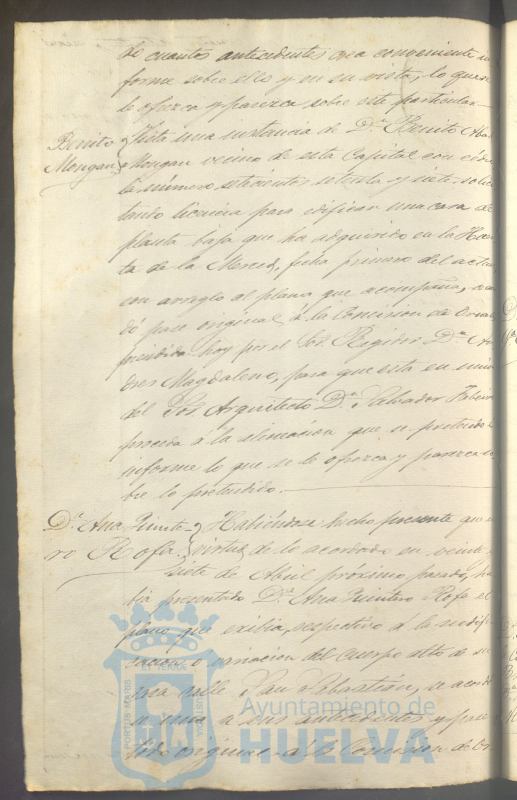 de cuantos antecedentes crea conveniente in
forme sobre ello y en su vista, lo que se
le ofrezca y parezca sobre este particular.
Benito
Mongan
Vista una instancia de Dn. Benito
Mongan vecino de esta Capital con cédu
la número setecientos setenta y siete, solici
tando licencia para edificar una casa de
planta baja que ha adquirido en la Huer
ta de la Merced, fecha primero del actual
con arreglo al plano que acompaña, acor
dó pase original á la Comision de Ornato
presidida hoy por el Sor. Regidor Dn. An
dres Magdaleno, para que esta en union
del Sor. Arquitecto Dn. Salvador
proceda á la alineacion que se pretende é
informe lo que se le ofrezca y parezca so
bre lo pretendido.
Da. Ana Quinte-
ro Rofa.
Habiéndose hecho presente que en
virtud de lo acordado en veinte
siete de Abril próximo pasado, ha
bia presentado Da. Ana Quintero Rofa el
plano que exibia, respectivo á la modifi
cacion o variacion del cuerpo alto de su
casa calle San Sebastian, se acordó
se una a sus antecedentes y pase
todo original á la Comision de Or
PORTUS MARIS
ET TERRÆ
CUSTODIA
Ayuntamiento de
HUELVA